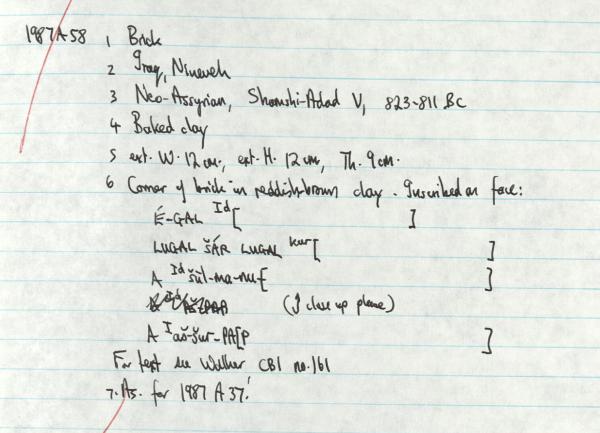 1987 A 58 1 Brick
2 Iraq, Nineveh
3 Neo-Assyrian, Shamshi-Adad V, 823-811 BC
4 Baked clay
5 ext. W. 12 cm., ext. H. 12 cm, Th. 9 cm.
6 Corner of brick in reddish-brown clay. Inscribed on face:
É-GAL Id[ ]
LUGAL ŠÁR LUGAL kur[ ]
A Id šùl-ma-nu-[ ]
(J close up please)
A I aš-šur-PA[P ]
For text see Walker CBI no. 161
7. As. for 1987 A 37.